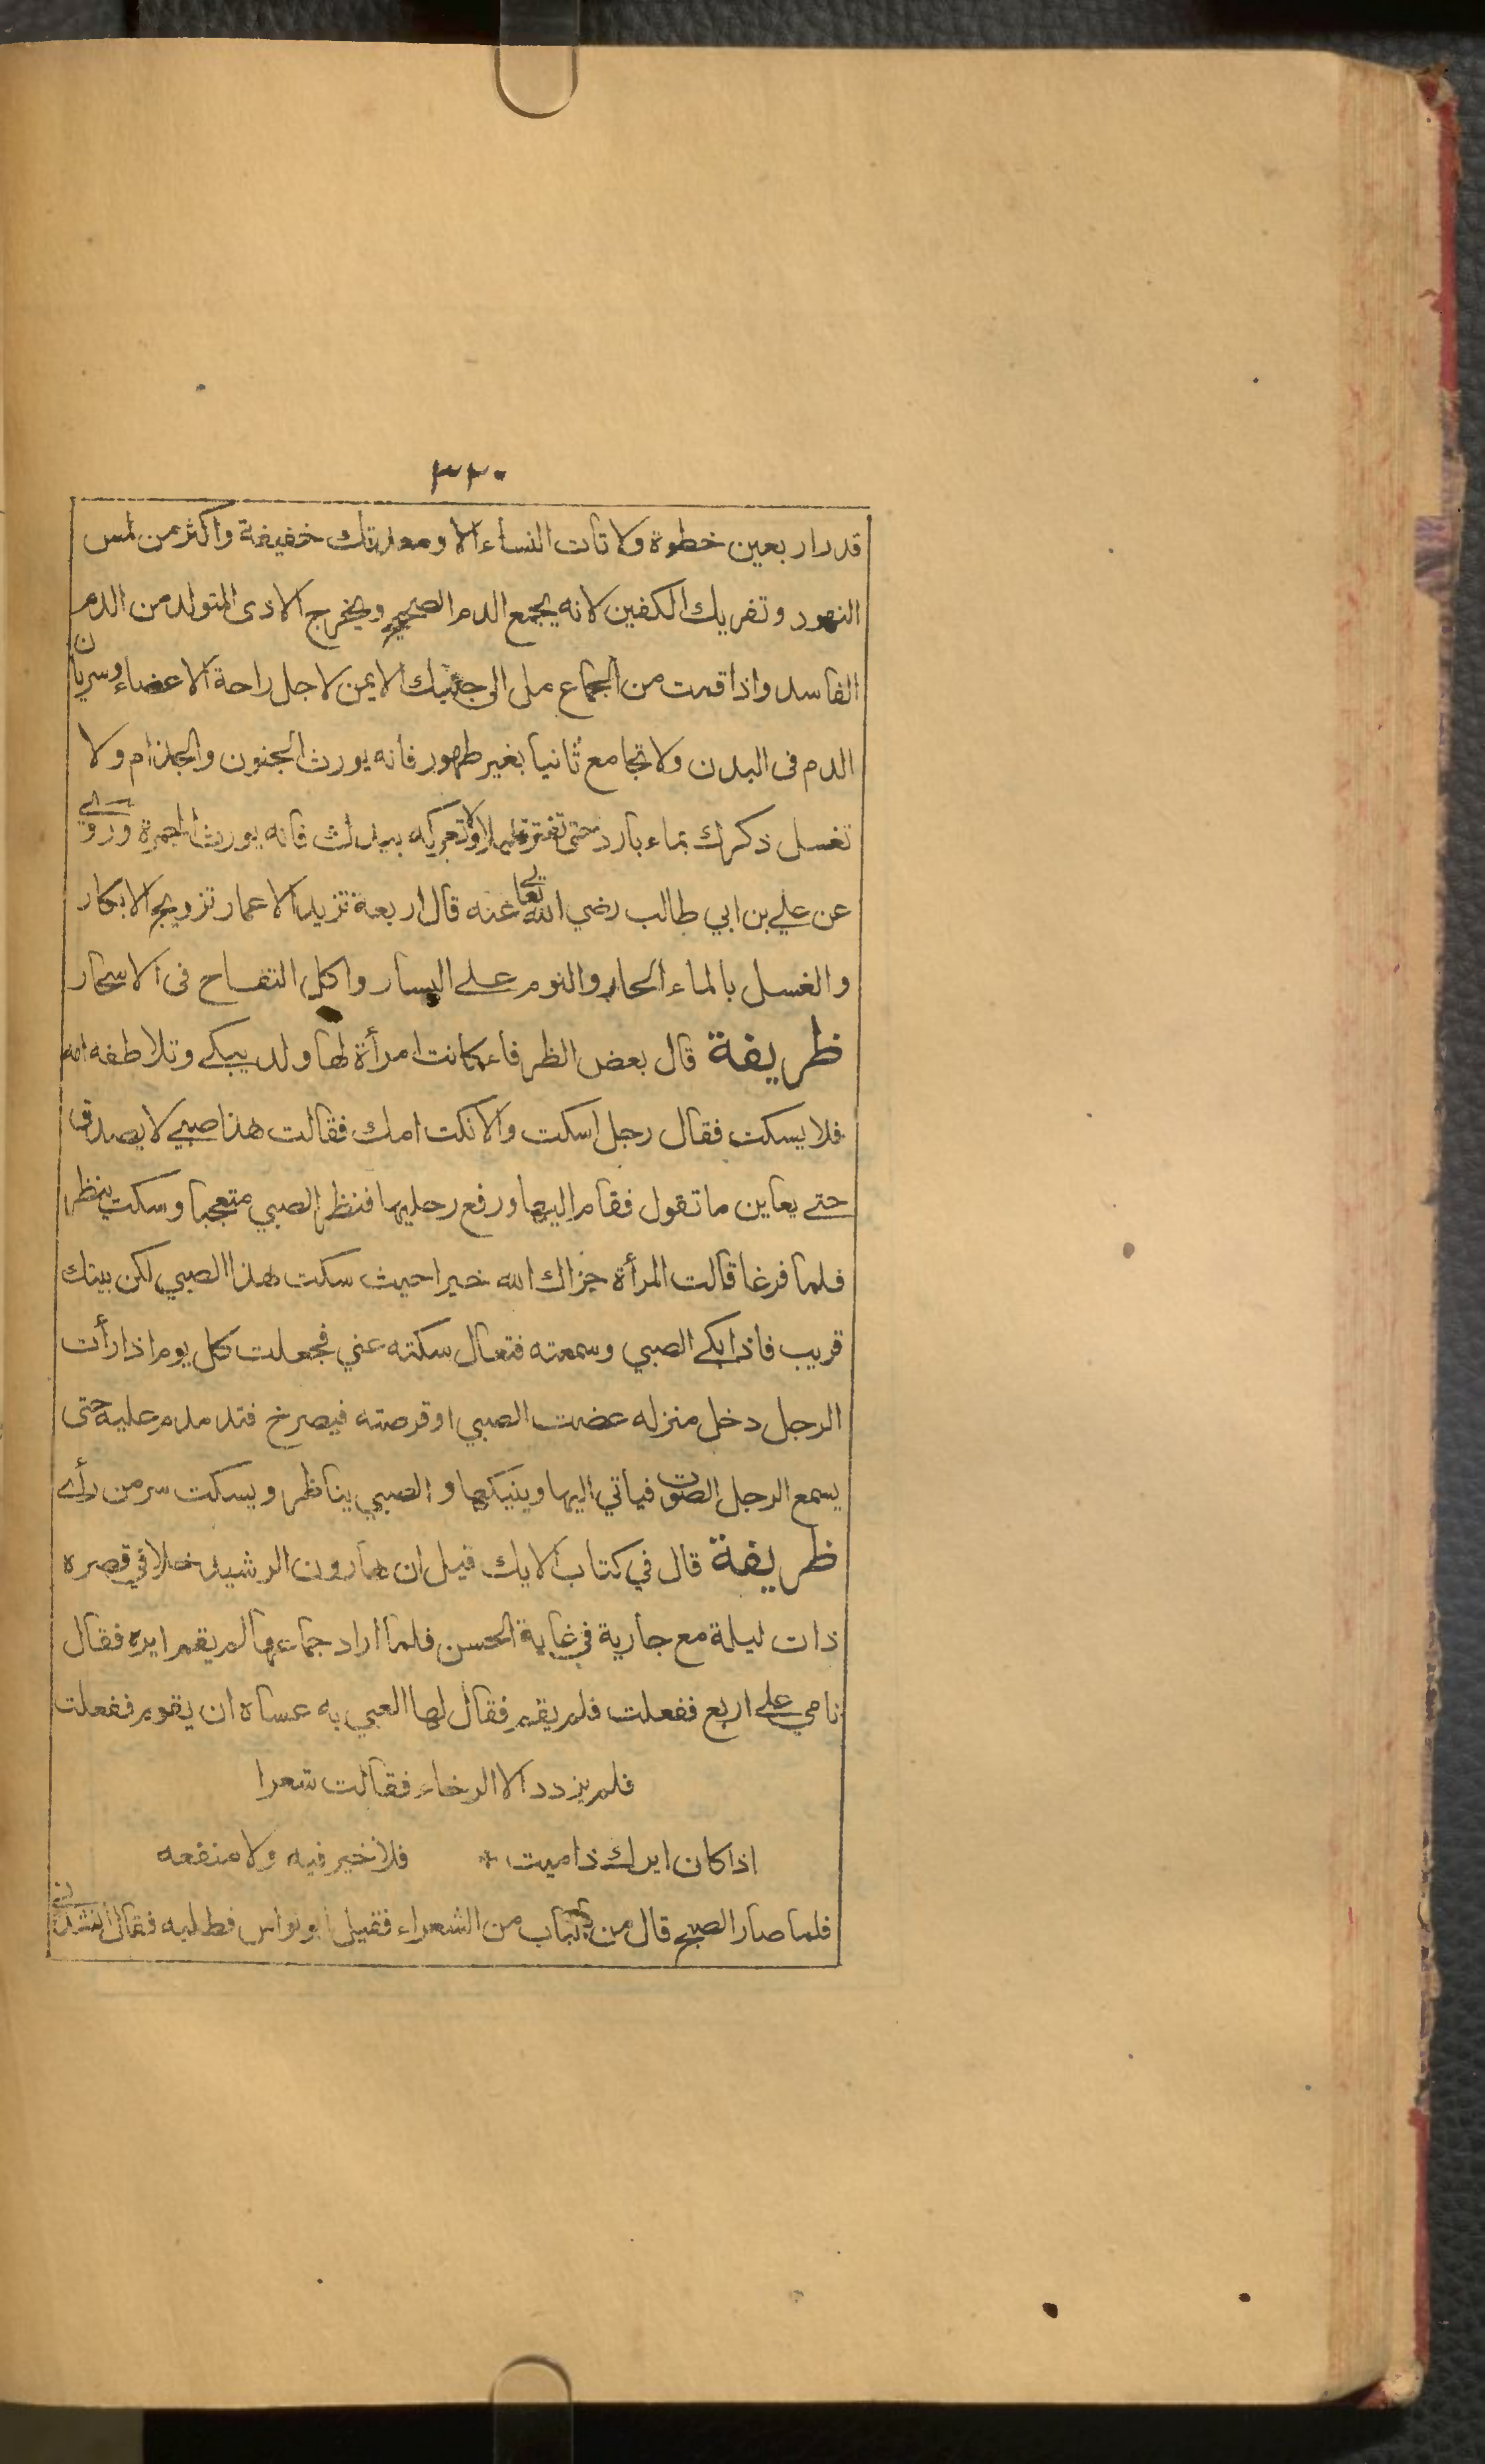 ٣٢٠
قدر اربعين خطوة ولا تات النساء الا ومعدتك خفيفة واكثر من لمس
النهود وتفريك الكفين لانه يجمع الدم الصحيح ويخرج الاذى المتولد من الدم
الفاسد واذا قمت من الجماع مل الى جنبك الايمن لاجل راحة الاعضاء وسريان
الدم فى البدن ولا تجامع ثانيا بغير طهور فانه يورث الجنون والجذام ولا
تغسل ذكرك بماء بارد حتى تفتر قليلا ولا تعركه بيدك فانه يورث الحمرة وروي
عن علي بن ابي طالب رضي الله تعالى عنه قال اربعة تزيد الاعمار تزويج الابكار
والغسل بالماء الحار والنوم على اليسار واكل التفاح فى الاسحار
ظريفة قال بعض الظرفاء كانت امرأة لها ولد يبكي وتلاطفه امه
فلا يسكت فقال رجل اسكت والا نكت امك فقالت هذا صبي لا يصدق
حتى يعاين ما تقول فقام اليها ورفع رجليها فنظر الصبي متعجبا وسكت ينظر
فلما فرغا قالت المرأة جزاك الله خيرا حيث سكت هذا الصبي لكن بيتك
قريب فاذا بكى الصبي وسمعته فتعال سكته عني فجعلت كل يوم اذا رأت
الرجل دخل منزله عضت الصبي او قرصته فيصرخ فتدمدم عليه حتى
يسمع الرجل الصوت فياتي اليها وينيكها والصبي يناظر ويسكت سر من رأى
ظريفة قال في كتاب الايك قيل ان هارون الرشيد خلا في قصره
ذات ليلة مع جارية في غاية الحسن فلما اراد جماعها لم يقم ايره فقال
نامي على اربع ففعلت فلم يقم فقال لها العبي به عساه ان يقوم ففعلت
فلم يزدد الا الرخاء فقالت شعرا
اذا كان ايرك ذا ميت * فلا خير فيه ولا منفعه
فلما صار الصبح قال من بالباب من الشعراء فقيل ابو نواس فطلبه فقال انشدني